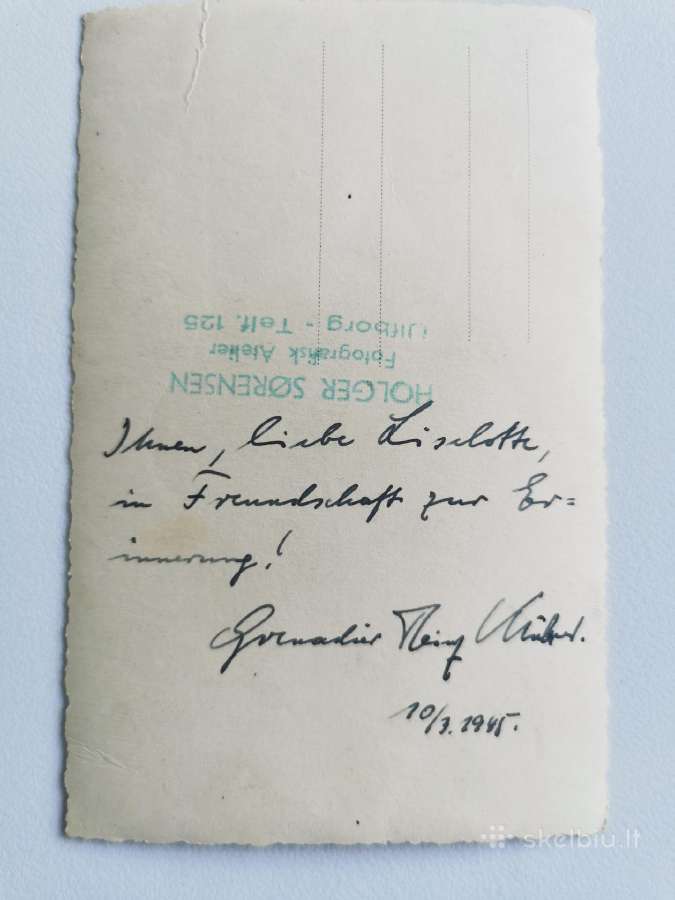 Ulfborg - Telf. 125
Fotografisk Atelier
HOLGER SØRENSEN
Ihnen, liebe Liselotte,
in Freundschaft zur Er=
innerung!
Grenadier Heinz
10/3. 1945.
skelbiu.lt